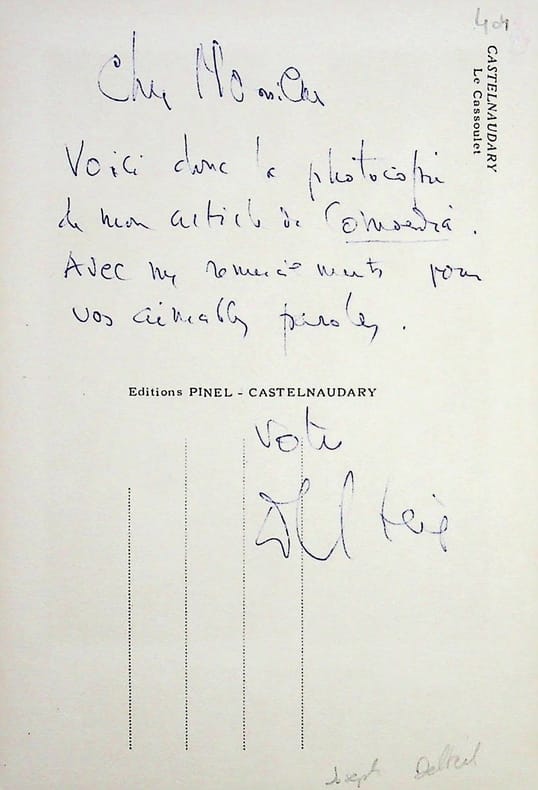 404
CASTELNAUDARY
Le Cassoulet
Cher Monsieur
Voici donc la photocopie
de mon article de Comoedia.
Avec mes remerciements pour
vos aimables paroles.
Editions PINEL - CASTELNAUDARY
Votre
J Delteil
Joseph Delteil